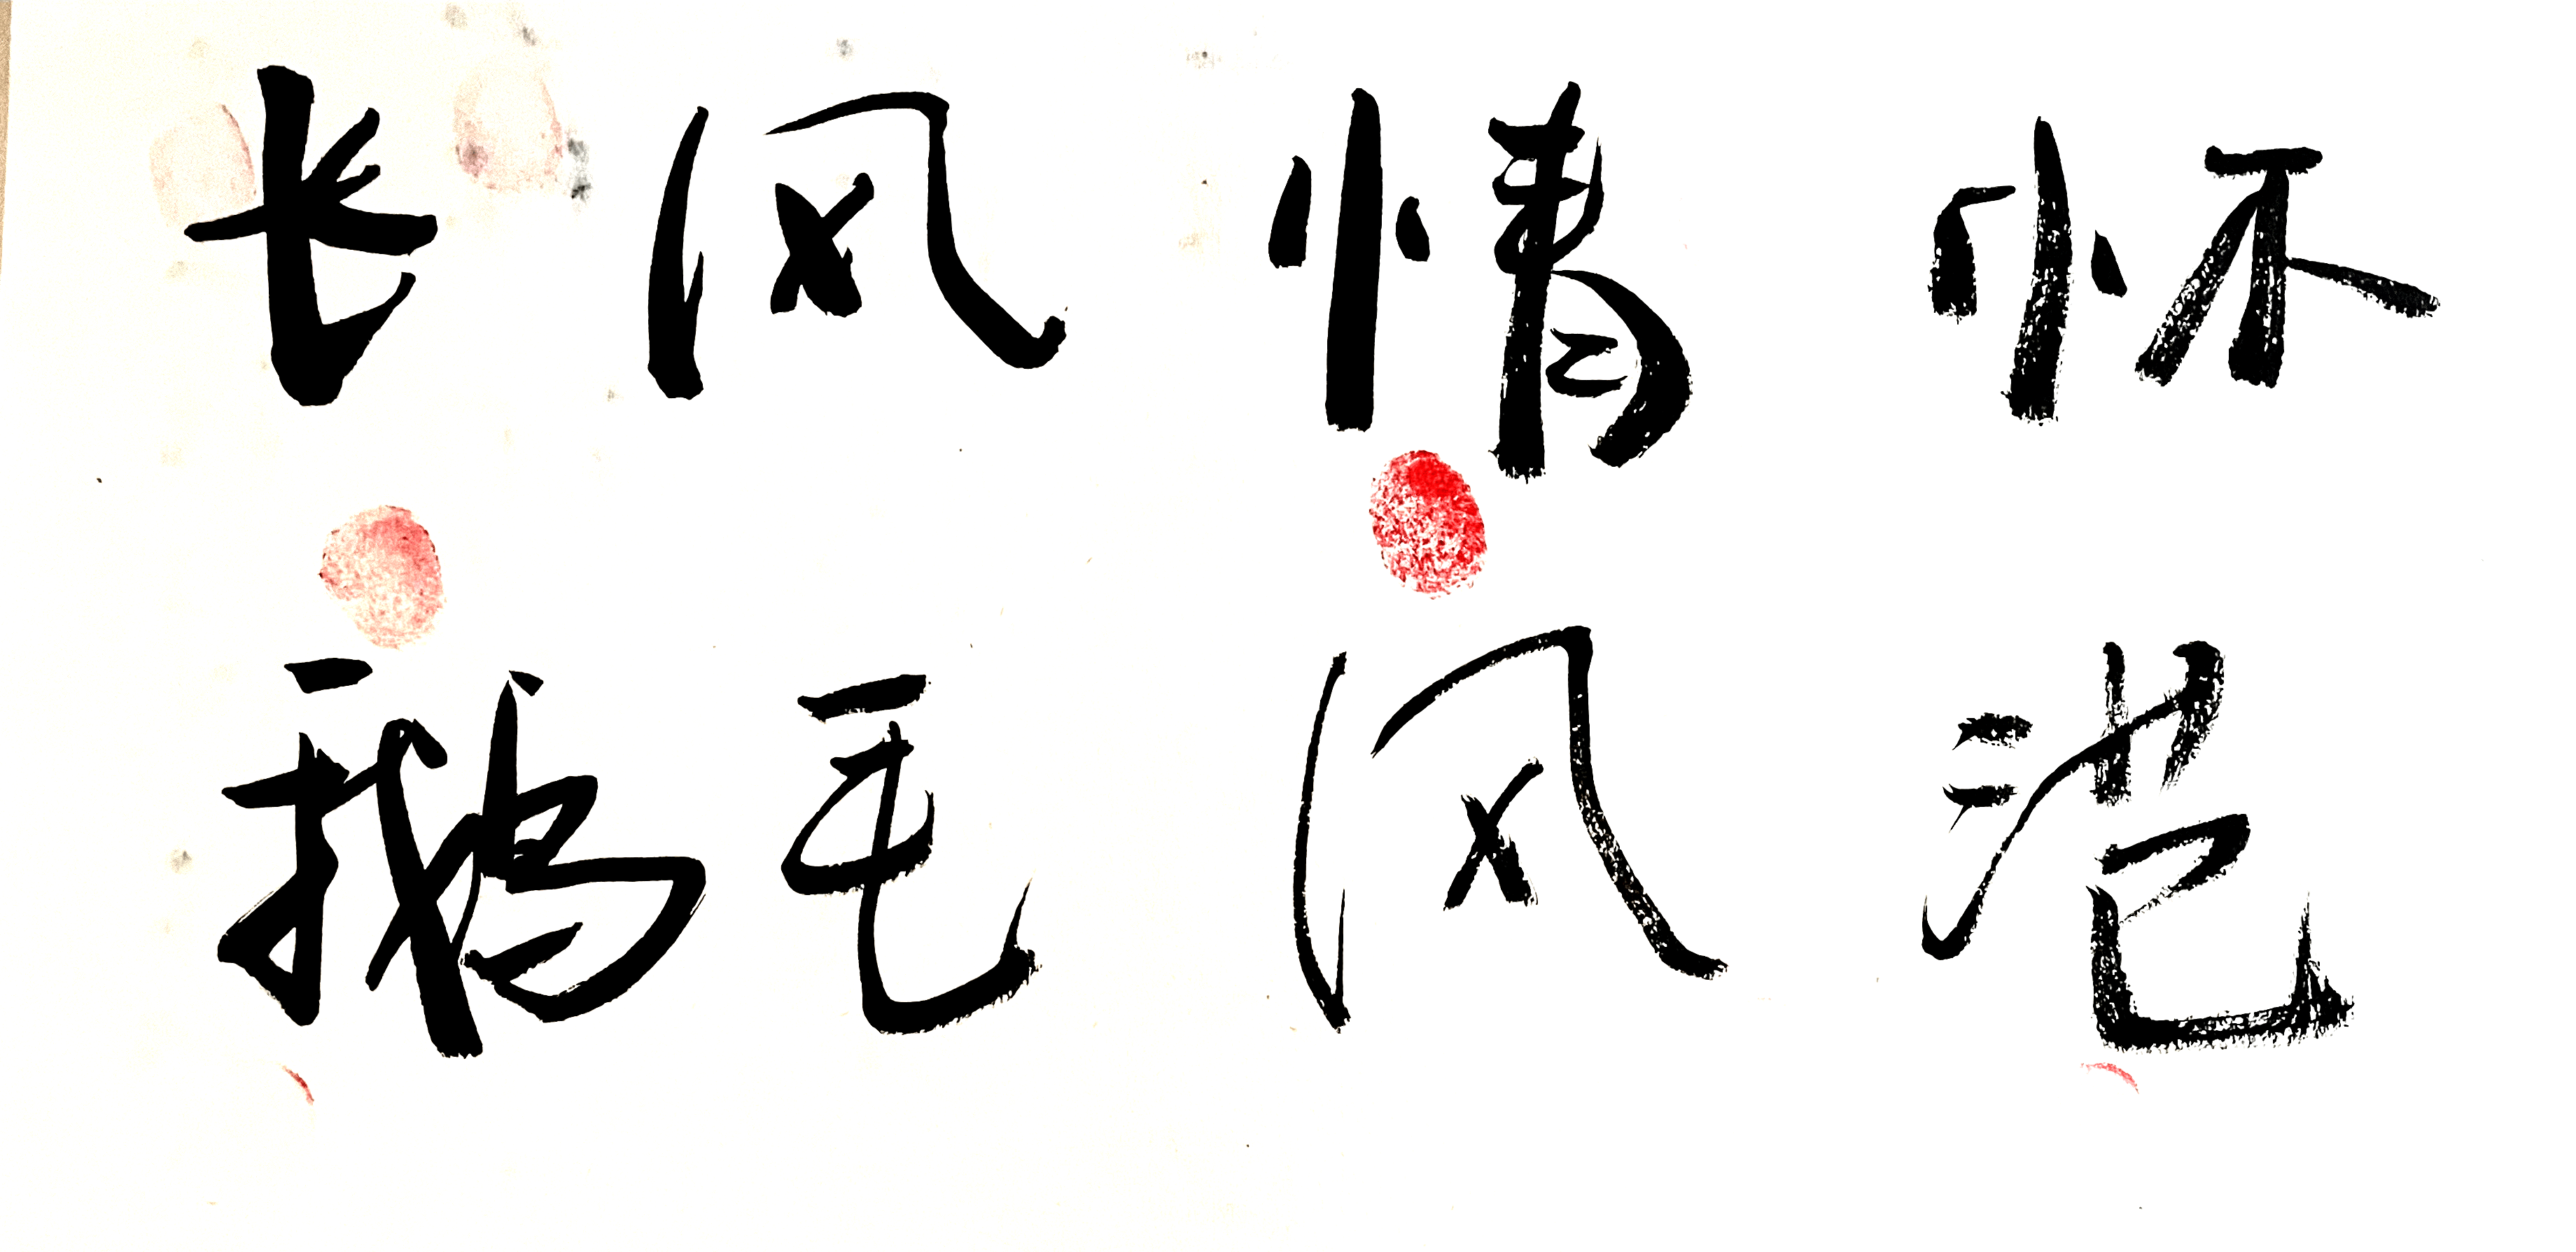 长风情怀
鹅毛风港